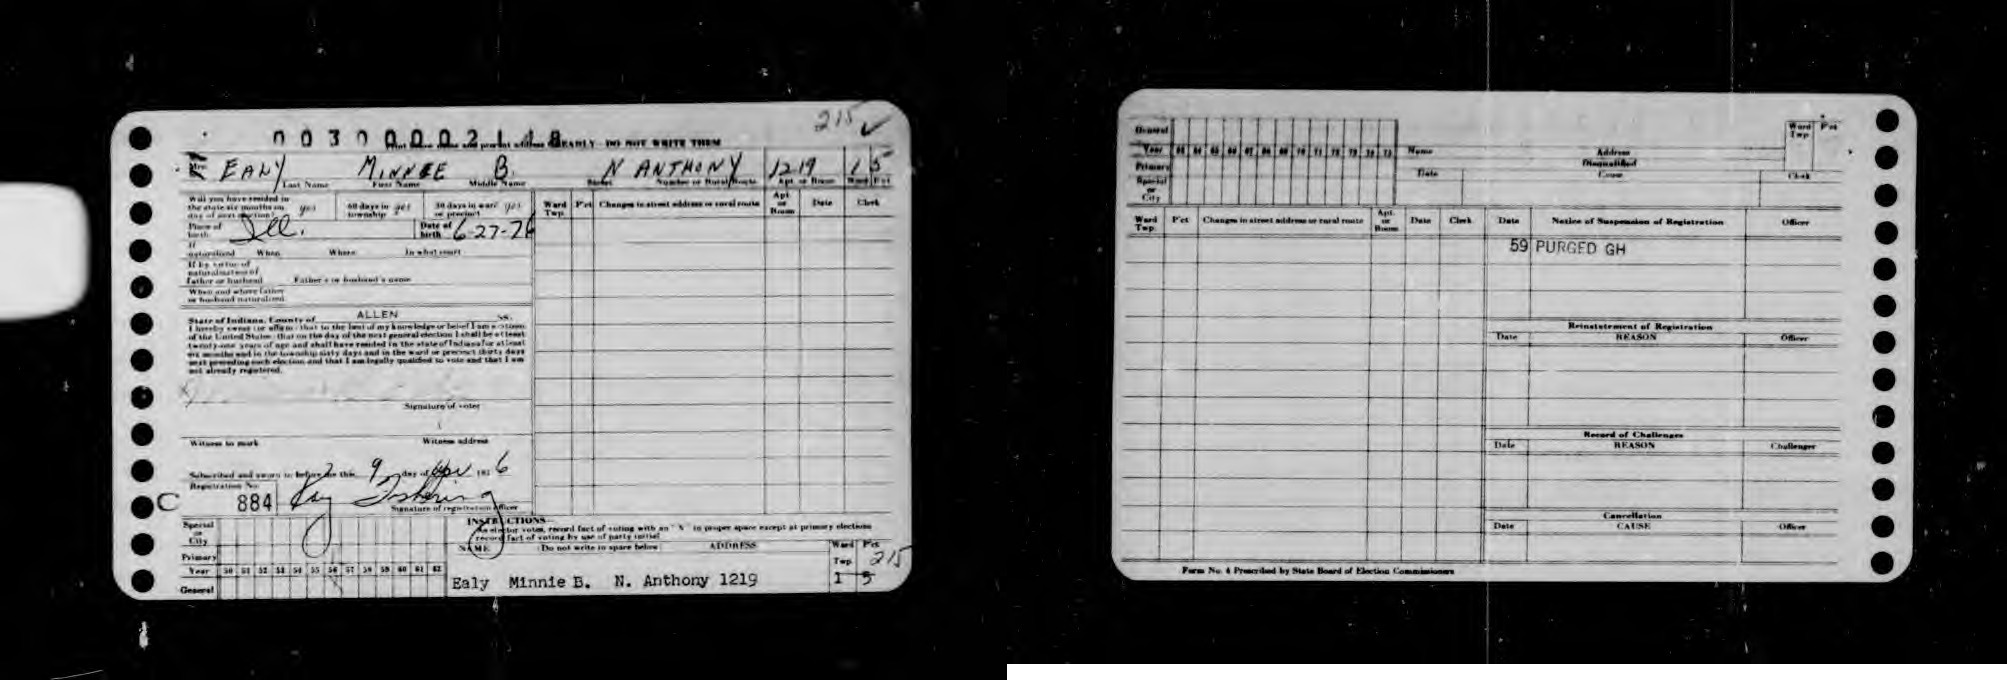 215 ✓
003000021 8
EARLY - DO NOT WRITE THEM
Mrs. EALY MINNEE B. N ANTHONY 1219 1 5
Last Name First Name Middle Name Street Number or Rural Route Apt. or Room Ward Pct
Will you have resided in the state six months on day of next election? yes 60 days in township yes 30 days in ward or precinct yes
Ward Twp. P'ct Changes in street address or rural route Apt. or Room Date Clerk
Place of birth Ill. Date of birth 6-27-26
If naturalized When Where In what court
If by virtue of naturalization of father or husband Father's or husband's name
When and where father or husband naturalized
State of Indiana, County of ALLEN ss.
I hereby swear (or affirm) that to the best of my knowledge or belief I am a citizen
of the United States; that on the day of the next general election I shall be at least
twenty-one years of age and shall have resided in the state of Indiana for at least
six months and in the township sixty days and in the ward or precinct thirty days
next preceding such election and that I am legally qualified to vote and that I am
not already registered.
X
Signature of voter
Witness to mark Witness address
Subscribed and sworn to before me this 9 day of Apr 195 6
Registration No.
C 884 Ray
Signature of registration officer
Special or City
Primary
Year 50 51 52 53 54 55 56 57 58 59 60 61 62
General
INSTRUCTIONS—
As elector votes, record fact of voting with an "X" in proper space except at primary elections
record fact of voting by use of party initial
NAME (Do not write in space below) ADDRESS Ward Twp. P'ct 215
Ealy Minnie B. N. Anthony 1219 1 5
General
Year 63 64 65 66 67 68 69 70 71 72 73 74 75
Primary
Special or City
Name Address
Ward Twp P'ct
Disqualified
Date Cause Clerk
Ward Twp. P'ct Changes in street address or rural route Apt. or Room Date Clerk
Date Notice of Suspension of Registration Officer
59 PURGED GH
Reinstatement of Registration
Date REASON Officer
Record of Challenges
Date REASON Challenger
Cancellation
Date CAUSE Officer
Form No. 4 Prescribed by State Board of Election Commissioners